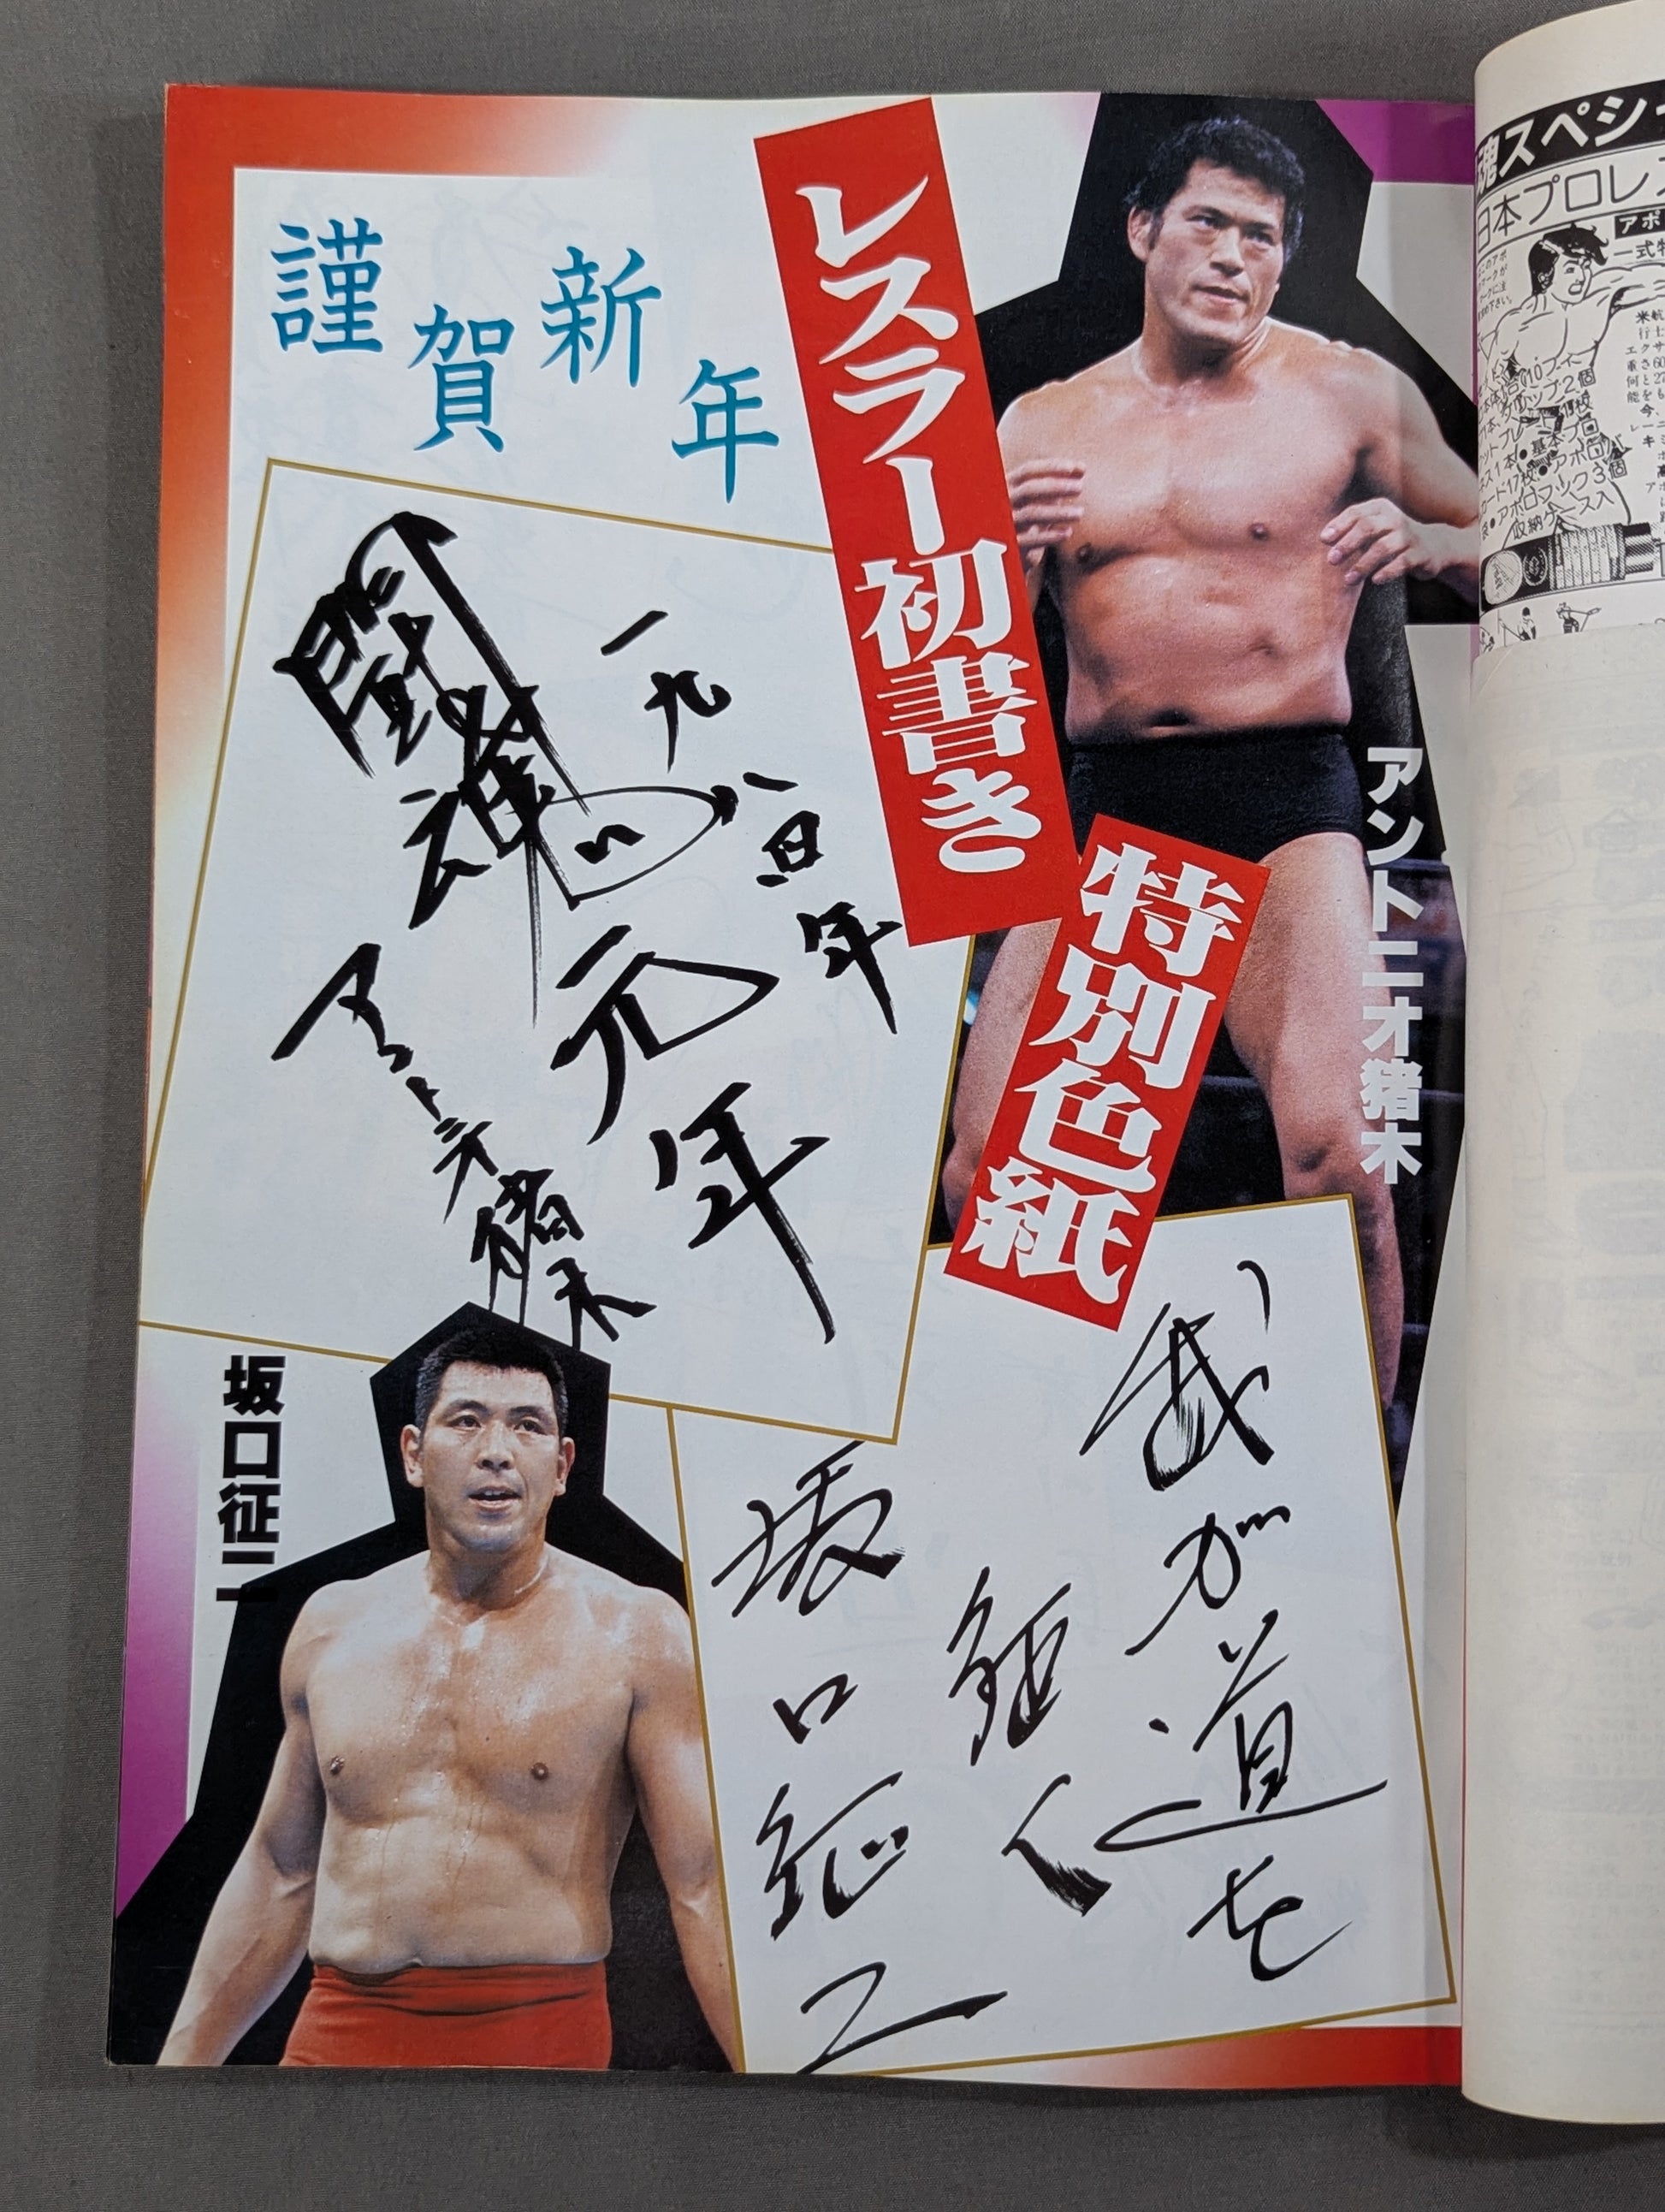 謹賀新年
レスラー初書き
特別色紙
アントニオ猪木
闘魂
元年
アントニオ猪木
坂口征二
我が道を
坂口征二
魂スペシ
日本プロレ
アポ
収納ケース入